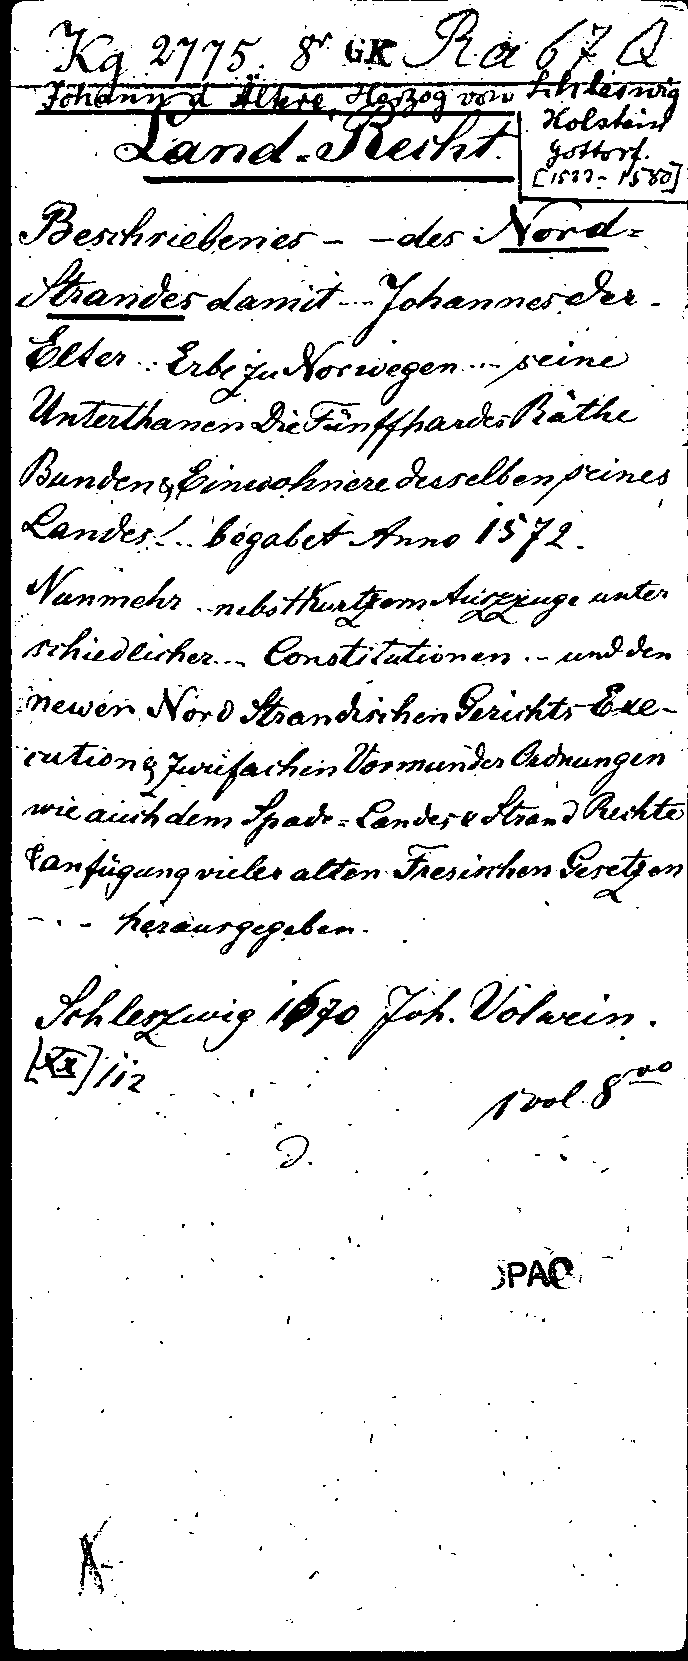 Kg 2775. 8° GK Ra 67 Q
Johann d. Ältere, Herzog von Schleswig
Holstein
Gottorf.
[1577-1580]
Land-Recht.
Beschriebenes - - des Nord-
Strandes damit ... Johannes der -
Elter .. Erbe zu Norwegen ... seine
Unterthanen Die Fünffhardes Räthe
Bunden & Einwohnere desselben seines
Landes! .. begabet Anno 1572.
Nunmehr .. nebst Kurtzem Auszzuge unter
schiedlicher ... Constitutionen .. und den
newen Nord Strandischen Gerichts Exe-
cution & zwiefachen Vormunder Ordnungen
wie auch dem Spade-Landes & Strand Rechte
& anfügung vieler alten Fresischen Gesetzen
- . - herausgegeben.
Schleszwig 1670 Joh. Volwein.
[XX] 112
1 vol 8vo
D.
OPAC